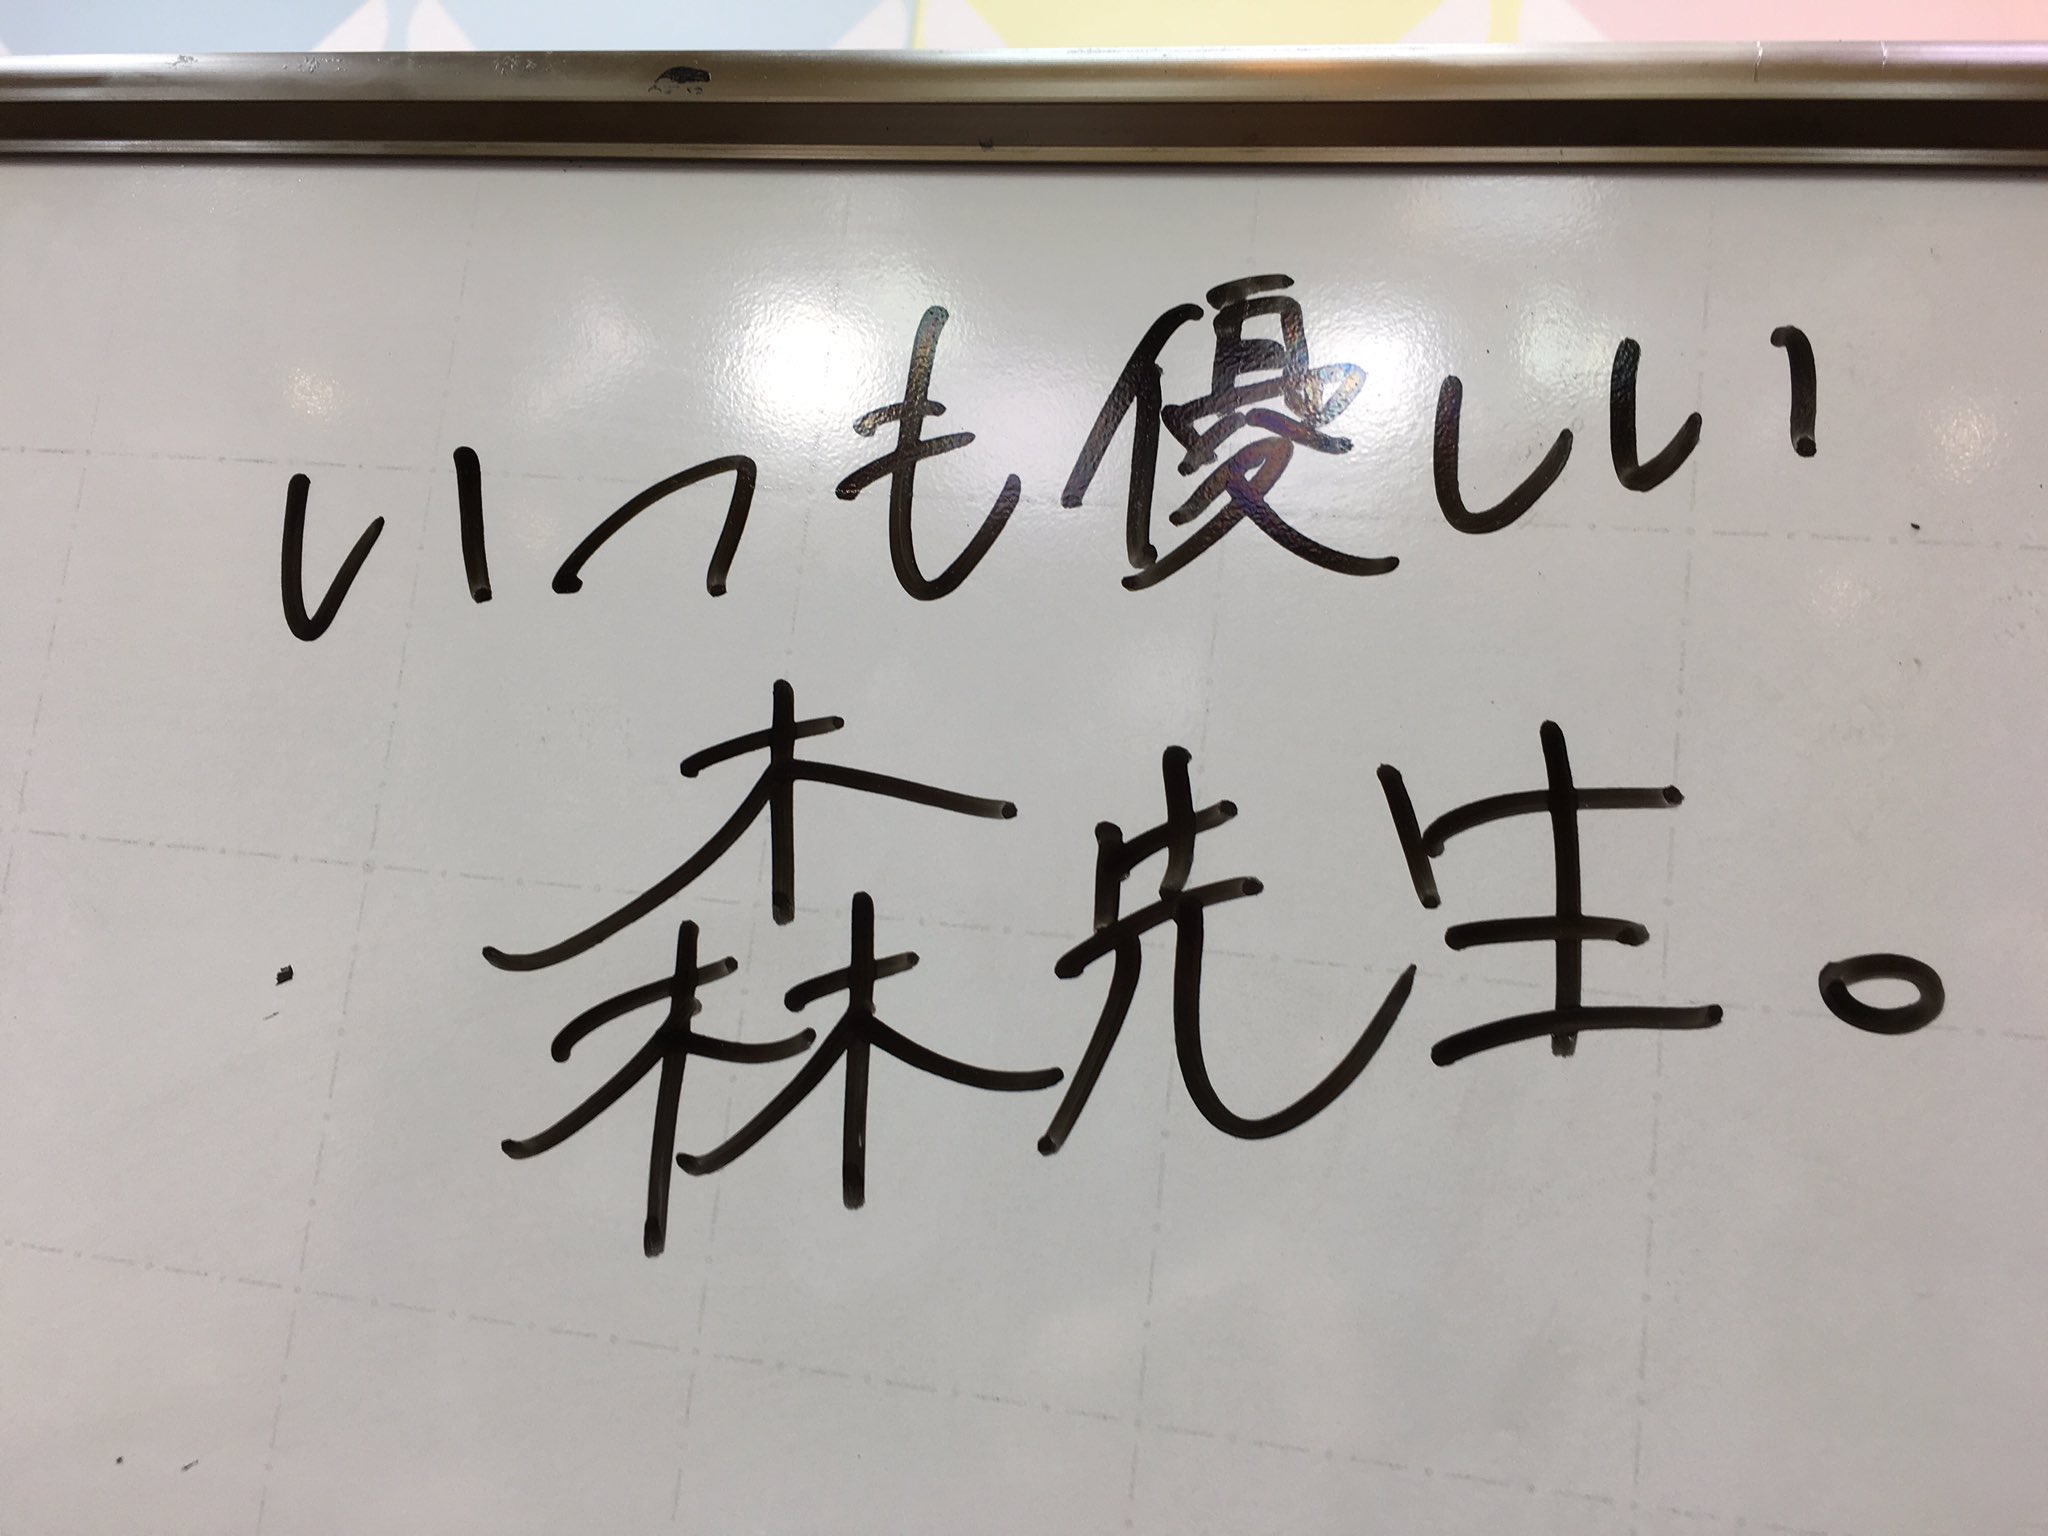 いつも優しい
森先生。